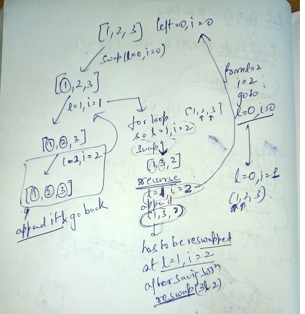 [1,2,3] left=0, i=0
swap(l=0,i=0)
[1,2,3]
l=1,i=1
[1,2,3]
l=2,i=2
[1,2,3]
append it & go back
for loop
so l=1, i=2
swap
[1,2,3]
[1,3,2]
recurse
l=2, i=2
append
(1,3,2)
has to be reswapped
at l=1, i=2
after saving soln
reswap (3&2)
from l=2
i=2
go to
l=0, i=0
l=0, i=1
(1,2,3)